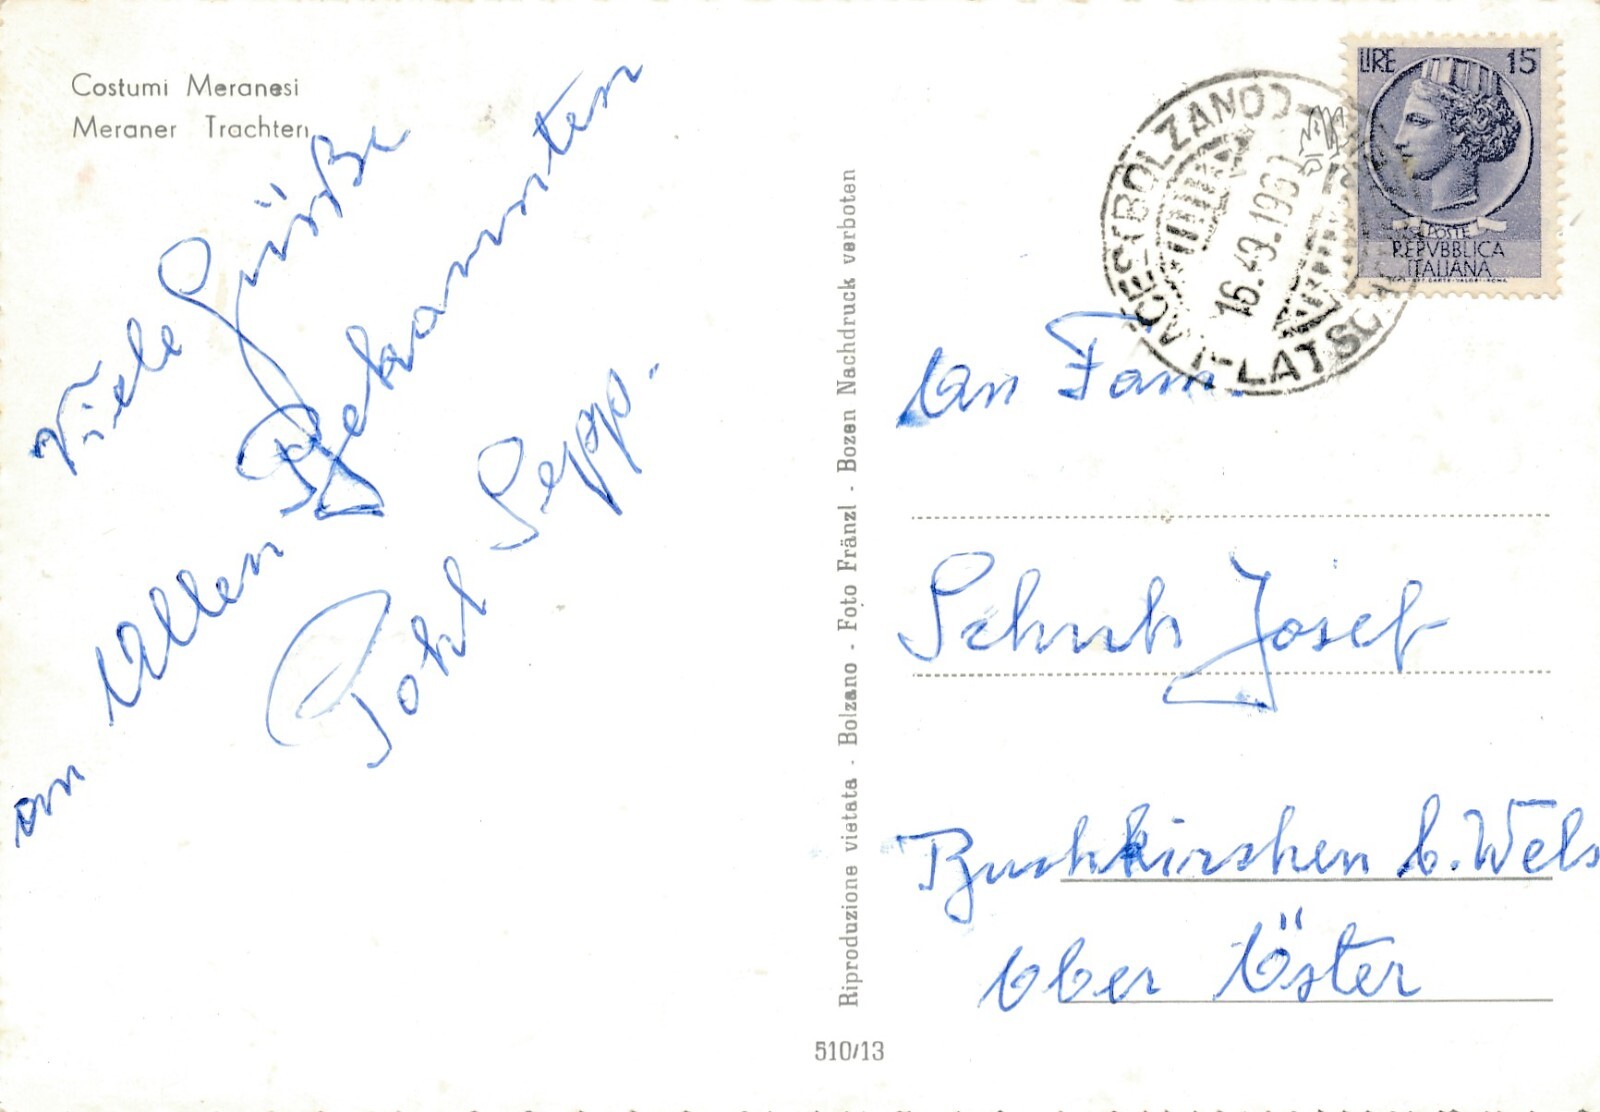 Costumi Meranesi
Meraner Trachten
Viele Grüsse
an Allen Bekannsten
Pohl Sepp.
Riproduzione vietata - Bolzano - Foto Fränzl - Bozen Nachdruck verboten
510/13
LIRE 15
POSTE
REPVBBLICA
ITALIANA
(BOLZANO)
LATSCH
An Fam.
Schuh Josef
Buchkirchen b. Wels
Ober Öster